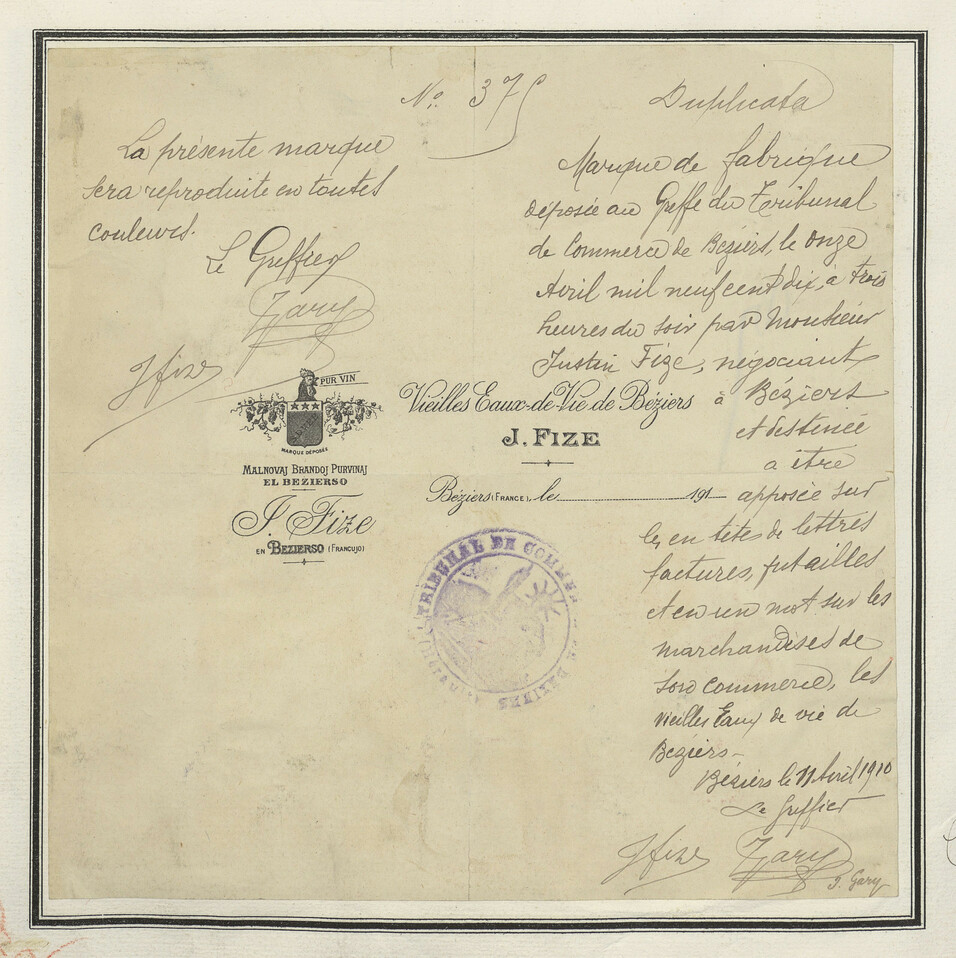 No. 375
Duplicata
La présente marque
sera reproduite en toutes
couleurs.
Le Greffier
Gary
J Fize
Marque de fabrique
déposée au Greffe du Tribunal
de Commerce de Béziers, le onze
Avril mil neuf cent dix, à trois
heures du soir par Monsieur
Justin Fize, négociant
à Béziers
et destinée
a être
apposée sur
les en tête de lettres
factures, futailles
et en un mot sur les
marchandises de
son commerce, les
vieilles Eaux de vie de
Beziers-
Béziers le 11 Avril 1910
Le Greffier
J Fize
Gary
J. Gary
PUR VIN
MARQUE DÉPOSÉE
MALNOVAJ BRANDOJ PURVINAJ
EL BEZIERSO
J. Fize
EN BEZIERSO (FRANCUJO)
Vieilles Eaux-de-Vie de Béziers
J. FIZE
Béziers (FRANCE), le 191
TRIBUNAL DE COMME
BEZIERS